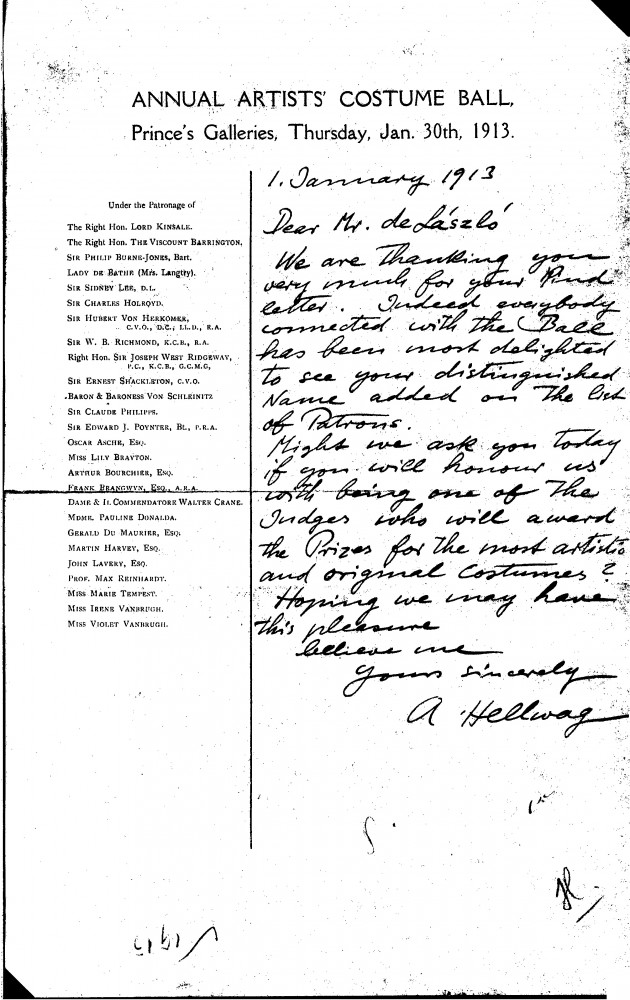 ANNUAL ARTISTS' COSTUME BALL,
Prince's Galleries, Thursday, Jan. 30th, 1913.
Under the Patronage of
The Right Hon. LORD KINSALE.
The Right Hon. THE VISCOUNT BARRINGTON.
SIR PHILIP BURNE-JONES, Bart.
LADY DE BATHE (Mrs. Langtry).
SIR SIDNEY LEE, D.L.
SIR CHARLES HOLROYD.
SIR HUBERT VON HERKOMER,
C.V.O., D.C.L., LL.D., R.A.
SIR W. B. RICHMOND, K.C.B., R.A.
Right Hon. SIR JOSEPH WEST RIDGEWAY,
P.C., K.C.B., G.C.M.G,
SIR ERNEST SHACKLETON, C.V.O.
BARON & BARONESS VON SCHLEINITZ
SIR CLAUDE PHILIPPS.
SIR EDWARD J. POYNTER, Bt., P.R.A.
OSCAR ASCHE, ESQ.
MISS LILY BRAYTON.
ARTHUR BOURCHIER, ESQ.
FRANK BRANGWYN, ESQ., A.R.A.
DAME & IL COMMENDATORE WALTER CRANE.
MDME. PAULINE DONALDA.
GERALD DU MAURIER, ESQ.
MARTIN HARVEY, ESQ.
JOHN LAVERY, ESQ.
PROF. MAX REINHARDT.
MISS MARIE TEMPEST.
MISS IRENE VANBRUGH.
MISS VIOLET VANBRUGH.
1. January 1913
Dear Mr. de László
We are thanking you
very much for your kind
letter. Indeed everybody
connected with the Ball
has been most delighted
to see your distinguished
Name added on the list
of Patrons.
Might we ask you today
if you will honour us
with being one of the
Judges who will award
the Prizes for the most artistic
and original Costumes?
Hoping we may have
this pleasure
believe me
Yours sincerely
A Hellwag